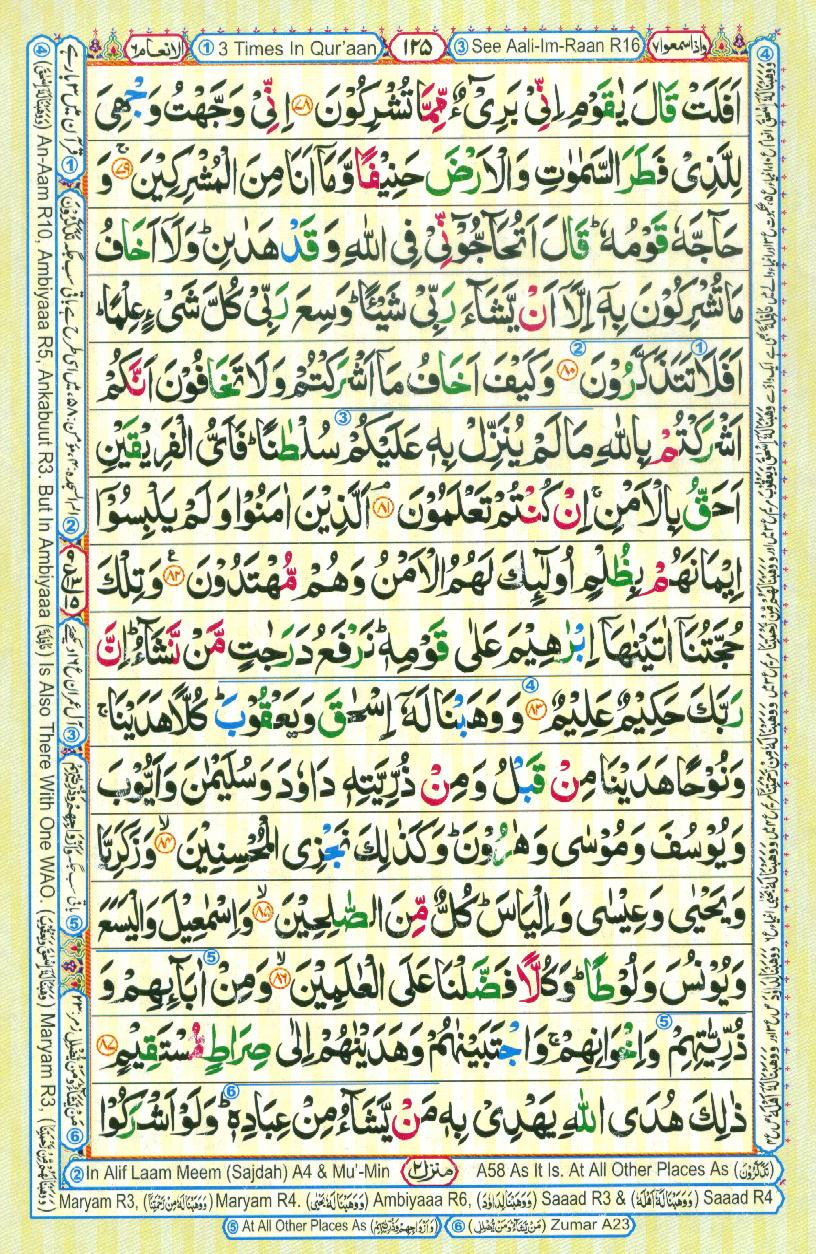 واذا سمعوا۷
③ See Aali-Im-Raan R16
١٢٥
① 3 Times In Qur'aan
الانعام٦
اَفَلَتْ قَالَ يٰقَوْمِ اِنِّىْ بَرِىْٓءٌ مِّمَّا تُشْرِكُوْنَ ﴿٧٨﴾ اِنِّىْ وَجَّهْتُ وَجْهِىَ
لِلَّذِىْ فَطَرَ السَّمٰوٰتِ وَالْاَرْضَ حَنِيْفًا وَّمَاۤ اَنَا مِنَ الْمُشْرِكِيْنَ ۚ﴿٧٩﴾ وَ
حَآجَّهٗ قَوْمُهٗ ؕ قَالَ اَتُحَآجُّوْٓنِّىْ فِى اللّٰهِ وَقَدْ هَدٰٮنِ ؕ وَلَاۤ اَخَافُ
مَا تُشْرِكُوْنَ بِهٖۤ اِلَّاۤ اَنْ يَّشَآءَ رَبِّىْ شَيْـًٔا ؕ وَسِعَ رَبِّىْ كُلَّ شَىْءٍ عِلْمًا ؕ
اَفَلَا تَتَذَكَّرُوْنَ ﴿٨٠﴾ وَكَيْفَ اَخَافُ مَاۤ اَشْرَكْتُمْ وَلَا تَخَافُوْنَ اَنَّكُمْ
اَشْرَكْتُمْ بِاللّٰهِ مَا لَمْ يُنَزِّلْ بِهٖ عَلَيْكُمْ سُلْطٰنًا ؕ فَاَىُّ الْفَرِيْقَيْنِ
اَحَقُّ بِالْاَمْنِ ۚ اِنْ كُنْتُمْ تَعْلَمُوْنَ ۘ﴿٨١﴾ اَلَّذِيْنَ اٰمَنُوْا وَلَمْ يَلْبِسُوْۤا
اِيْمَانَهُمْ بِظُلْمٍ اُولٰٓئِكَ لَهُمُ الْاَمْنُ وَهُمْ مُّهْتَدُوْنَ ﴿٨٢﴾ وَتِلْكَ
حُجَّتُنَاۤ اٰتَيْنٰهَاۤ اِبْرٰهِيْمَ عَلٰى قَوْمِهٖ ؕ نَرْفَعُ دَرَجٰتٍ مَّنْ نَّشَآءُ ؕ اِنَّ
رَبَّكَ حَكِيْمٌ عَلِيْمٌ ﴿٨٣﴾ وَوَهَبْنَا لَهٗۤ اِسْحٰقَ وَيَعْقُوْبَ ؕ كُلًّا هَدَيْنَا ۚ
وَنُوْحًا هَدَيْنَا مِنْ قَبْلُ وَمِنْ ذُرِّيَّتِهٖ دَاوٗدَ وَسُلَيْمٰنَ وَاَيُّوْبَ
وَيُوْسُفَ وَمُوْسٰى وَهٰرُوْنَ ؕ وَكَذٰلِكَ نَجْزِى الْمُحْسِنِيْنَ ۙ﴿٨٤﴾ وَزَكَرِيَّا
وَيَحْيٰى وَعِيْسٰى وَاِلْيَاسَ ؕ كُلٌّ مِّنَ الصّٰلِحِيْنَ ۙ﴿٨٥﴾ وَاِسْمٰعِيْلَ وَالْيَسَعَ
وَيُوْنُسَ وَلُوْطًا ؕ وَكُلًّا فَضَّلْنَا عَلَى الْعٰلَمِيْنَ ۙ﴿٨٦﴾ وَمِنْ اٰبَآئِهِمْ وَ
ذُرِّيّٰتِهِمْ وَاِخْوَانِهِمْ ۚ وَاجْتَبَيْنٰهُمْ وَهَدَيْنٰهُمْ اِلٰى صِرَاطٍ مُّسْتَقِيْمٍ ﴿٨٧﴾
ذٰلِكَ هُدَى اللّٰهِ يَهْدِىْ بِهٖ مَنْ يَّشَآءُ مِنْ عِبَادِهٖ ؕ وَلَوْ اَشْرَكُوْا
④ (وَوَهَبْنَا لَهٗ اِسْحٰقَ) An-Aam R10, Ambiyaaa R5, Ankabuut R3. But In Ambiyaaa (نَافِلَةً) Is Also There With One WAO. (وَهَبْنَا لَهٗ اِسْحٰقَ وَيَعْقُوْبَ) Maryam R3, (وَوَهَبْنَا لَهُمْ مِّنْ رَّحْمَتِنَا)
② In Alif Laam Meem (Sajdah) A4 & Mu'-Min
منزل٢
A58 As It Is. At All Other Places As (تَذَكَّرُوْنَ)
Maryam R3, (وَوَهَبْنَا لَهٗ مِنْ رَّحْمَتِنَا) Maryam R4. (وَوَهَبْنَا لَهٗ يَحْيٰى) Ambiyaaa R6, (وَوَهَبْنَا لِدَاوٗدَ) Saaad R3 & (وَوَهَبْنَا لَهٗۤ اَهْلَهٗ) Saaad R4
⑤ At All Other Places As (وَاَزْوَاجِهِمْ وَذُرِّيّٰتِهِمْ) ⑥ (مَنْ يَّشَآءُ وَمَنْ يُّضْلِلِ) Zumar A23